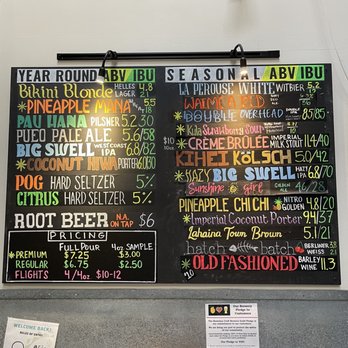 YEAR ROUND ABV/IBU
Bikini Blonde HELLES LAGER 4.8 21
*PINEAPPLE MANA 5.5 18
PAU HANA PILSNER 5.2 30
PUEO PALE ALE 5.6/58
BIG SWELL WEST COAST IPA 6.8/82
*COCONUT HIWA PORTER 6.0/30
POG HARD SELTZER 5%
CITRUS HARD SELTZER 5%
ROOT BEER N.A. ON TAP $6
PRICING
FULL POUR 4oz SAMPLE
*PREMIUM $7.25 $3.00
REGULAR $6.75 $2.50
FLIGHTS 4/4oz $10-12
SEASONAL ABV/IBU
LA PEROUSE WHITE WITBIER 5.2
WAIMEA RED
*DOUBLE OVERHEAD 8.5/85
*Kula Strawberry Sour
*CRÈME BRÛLÉE MILK STOUT
KIHEI KÖLSCH 5.0/42
*HAZY BIG SWELL IPA 6.8/28
Sunshine Girl
PINEAPPLE CHI CHI NITRO GOLDEN 4.8/20
*Imperial Coconut Porter 9.4/37
Lahaina Town Brown 5.1/21
hatch hatch BERLINER WEISS 3.8
*OLD FASHIONED BARLEY WINE 11.3
WELCOME BACK!